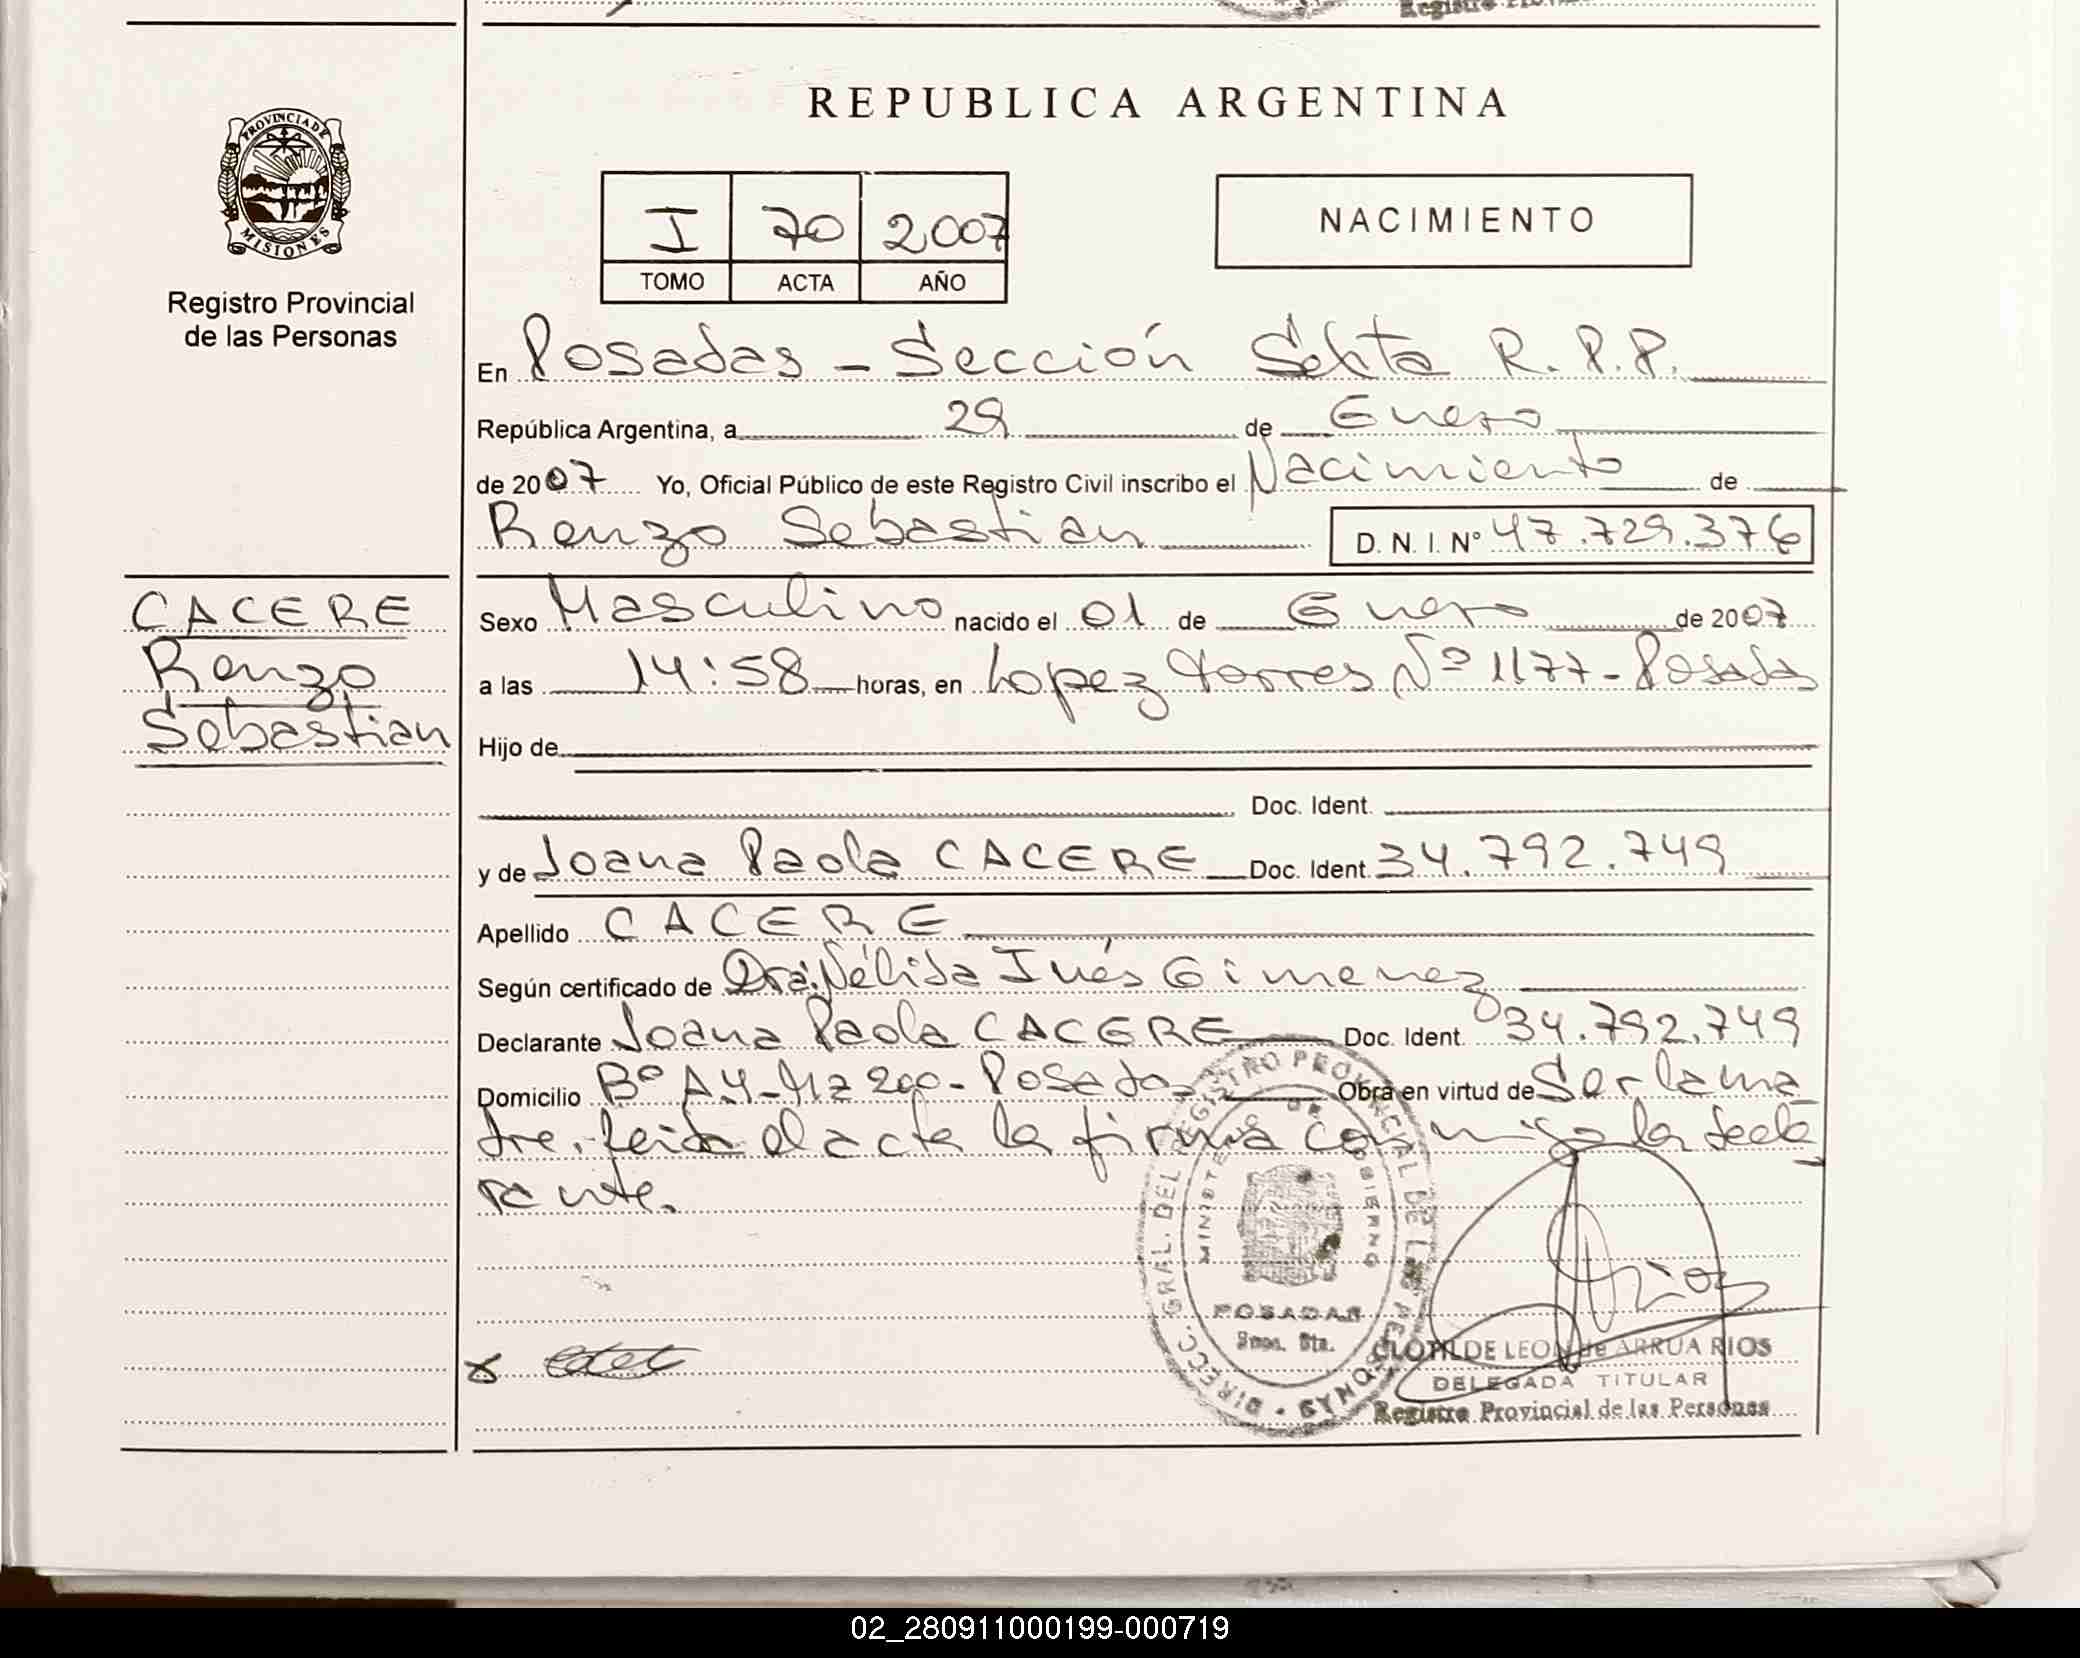 REPUBLICA ARGENTINA
PROVINCIA DE
MISIONES
Registro Provincial
de las Personas
I 70 2007
TOMO ACTA AÑO
NACIMIENTO
En Posadas - Sección Sexta R.P.P.
República Argentina, a 29 de Enero
de 2007 Yo, Oficial Público de este Registro Civil inscribo el Nacimiento de
Renzo Sebastian D. N. I. Nº 47.729.376
CACERE
Renzo
Sebastian
Sexo Masculino nacido el 01 de Enero de 2007
a las 14:58 horas, en Lopez Torres Nº 1177 - Posadas
Hijo de
Doc. Ident.
y de Joana Paola CACERE Doc. Ident. 34.792.749
Apellido CACERE
Según certificado de Dra. Nélida Inés Gimenez
Declarante Joana Paola CACERE Doc. Ident. 34.792.749
Domicilio Bº A4 - Mz 200 - Posadas Obra en virtud de Ser la ma
dre. Leida el acta la firma conmigo la decla
rante.
DIRECC. GRAL. DEL REGISTRO PROVINCIAL DE LAS PERSONAS
MINISTERIO DE GOBIERNO
POSADAS
CLOTILDE LEON de ARRUA RIOS
DELEGADA TITULAR
Registro Provincial de las Personas
02_280911000199-000719